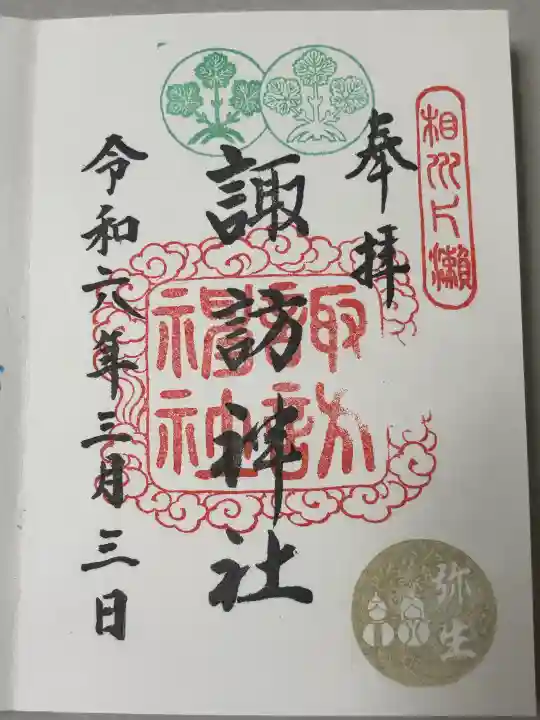 相州片瀬
奉拝
諏訪神社
諏訪神社
令和六年三月三日
弥生